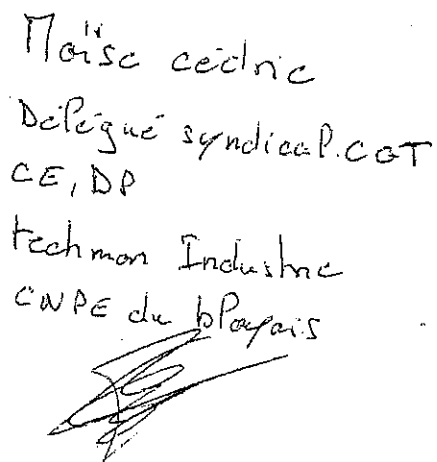 Moïse cédric
Délégué syndical.CGT
CE, DP
techman Industrie
CNPE du blayais